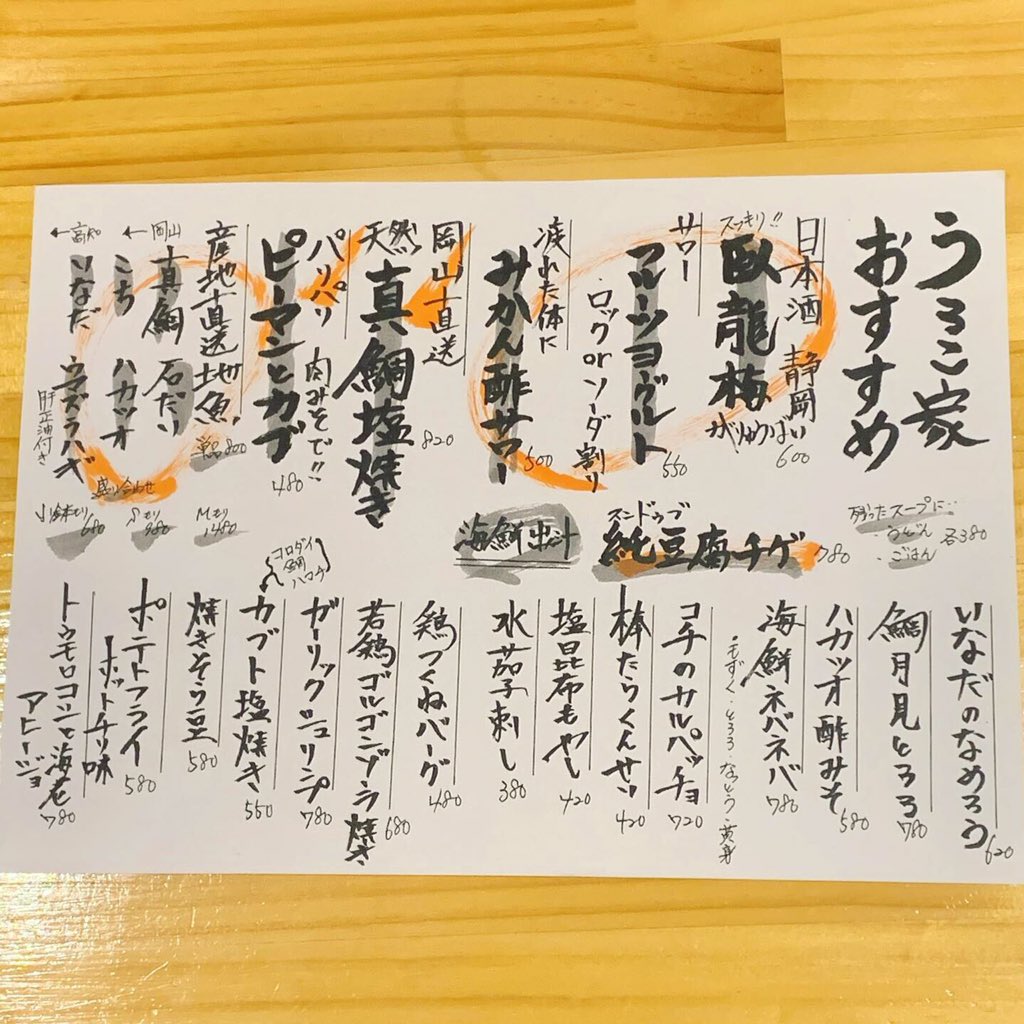 うろこ家
おすすめ
日本酒 静岡
スッキリ!!
臥龍梅
がりゅうばい
600
サワー
フルーツヨーグルト
550
ロックorソーダ割り
疲れた体に
みかん酢サワー
500
岡山直送
天然真鯛塩焼き
820
パリパリ 肉みそで!!
ピーマンとカブ
480
産地直送地魚
単品800
←岡山
真鯛 石だい
こち ハカツオ
←高知
いなだ ウマズラハギ
肝正油付き
盛り合わせ
Mモリ
1480
Sモリ
980
小鉢モリ
680
残ったスープに…
・うどん
・ごはん
各380
海鮮出汁
スンドゥブ
純豆腐チゲ
780
いなだのなめろう
620
鯛月見とろろ
780
ハカツオ酢みそ
580
海鮮ネバネバ
780
・もずく・とろろ・なっとう・黄身
コチのカルパッチョ
720
棒たらくんせい
420
塩昆布もやし
420
水茄子刺し
380
鶏つくねバーグ
480
若鶏ゴルゴンゾーラ焼き
680
ガーリックシュリンプ
780
カブト塩焼き
550
コロダイ
鯛
ハコチ
焼きそら豆
580
ポテトフライ
ホットチリ味
580
トウモロコシと海老
アヒージョ
780